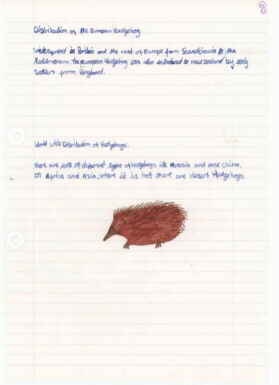 Distribution of the European Hedgehog
Widespread in Britain and the rest of Europe from Scandinavia to the
Mediterranean the european Hedgehog was also introduced to new zealand by early
settlers from England.
World Wide Distribution of Hedgehogs.
There are lots of different types of Hedgehogs in Russia and and China,
in Africa and Asia, where it is hot there are desert Hedgehogs.